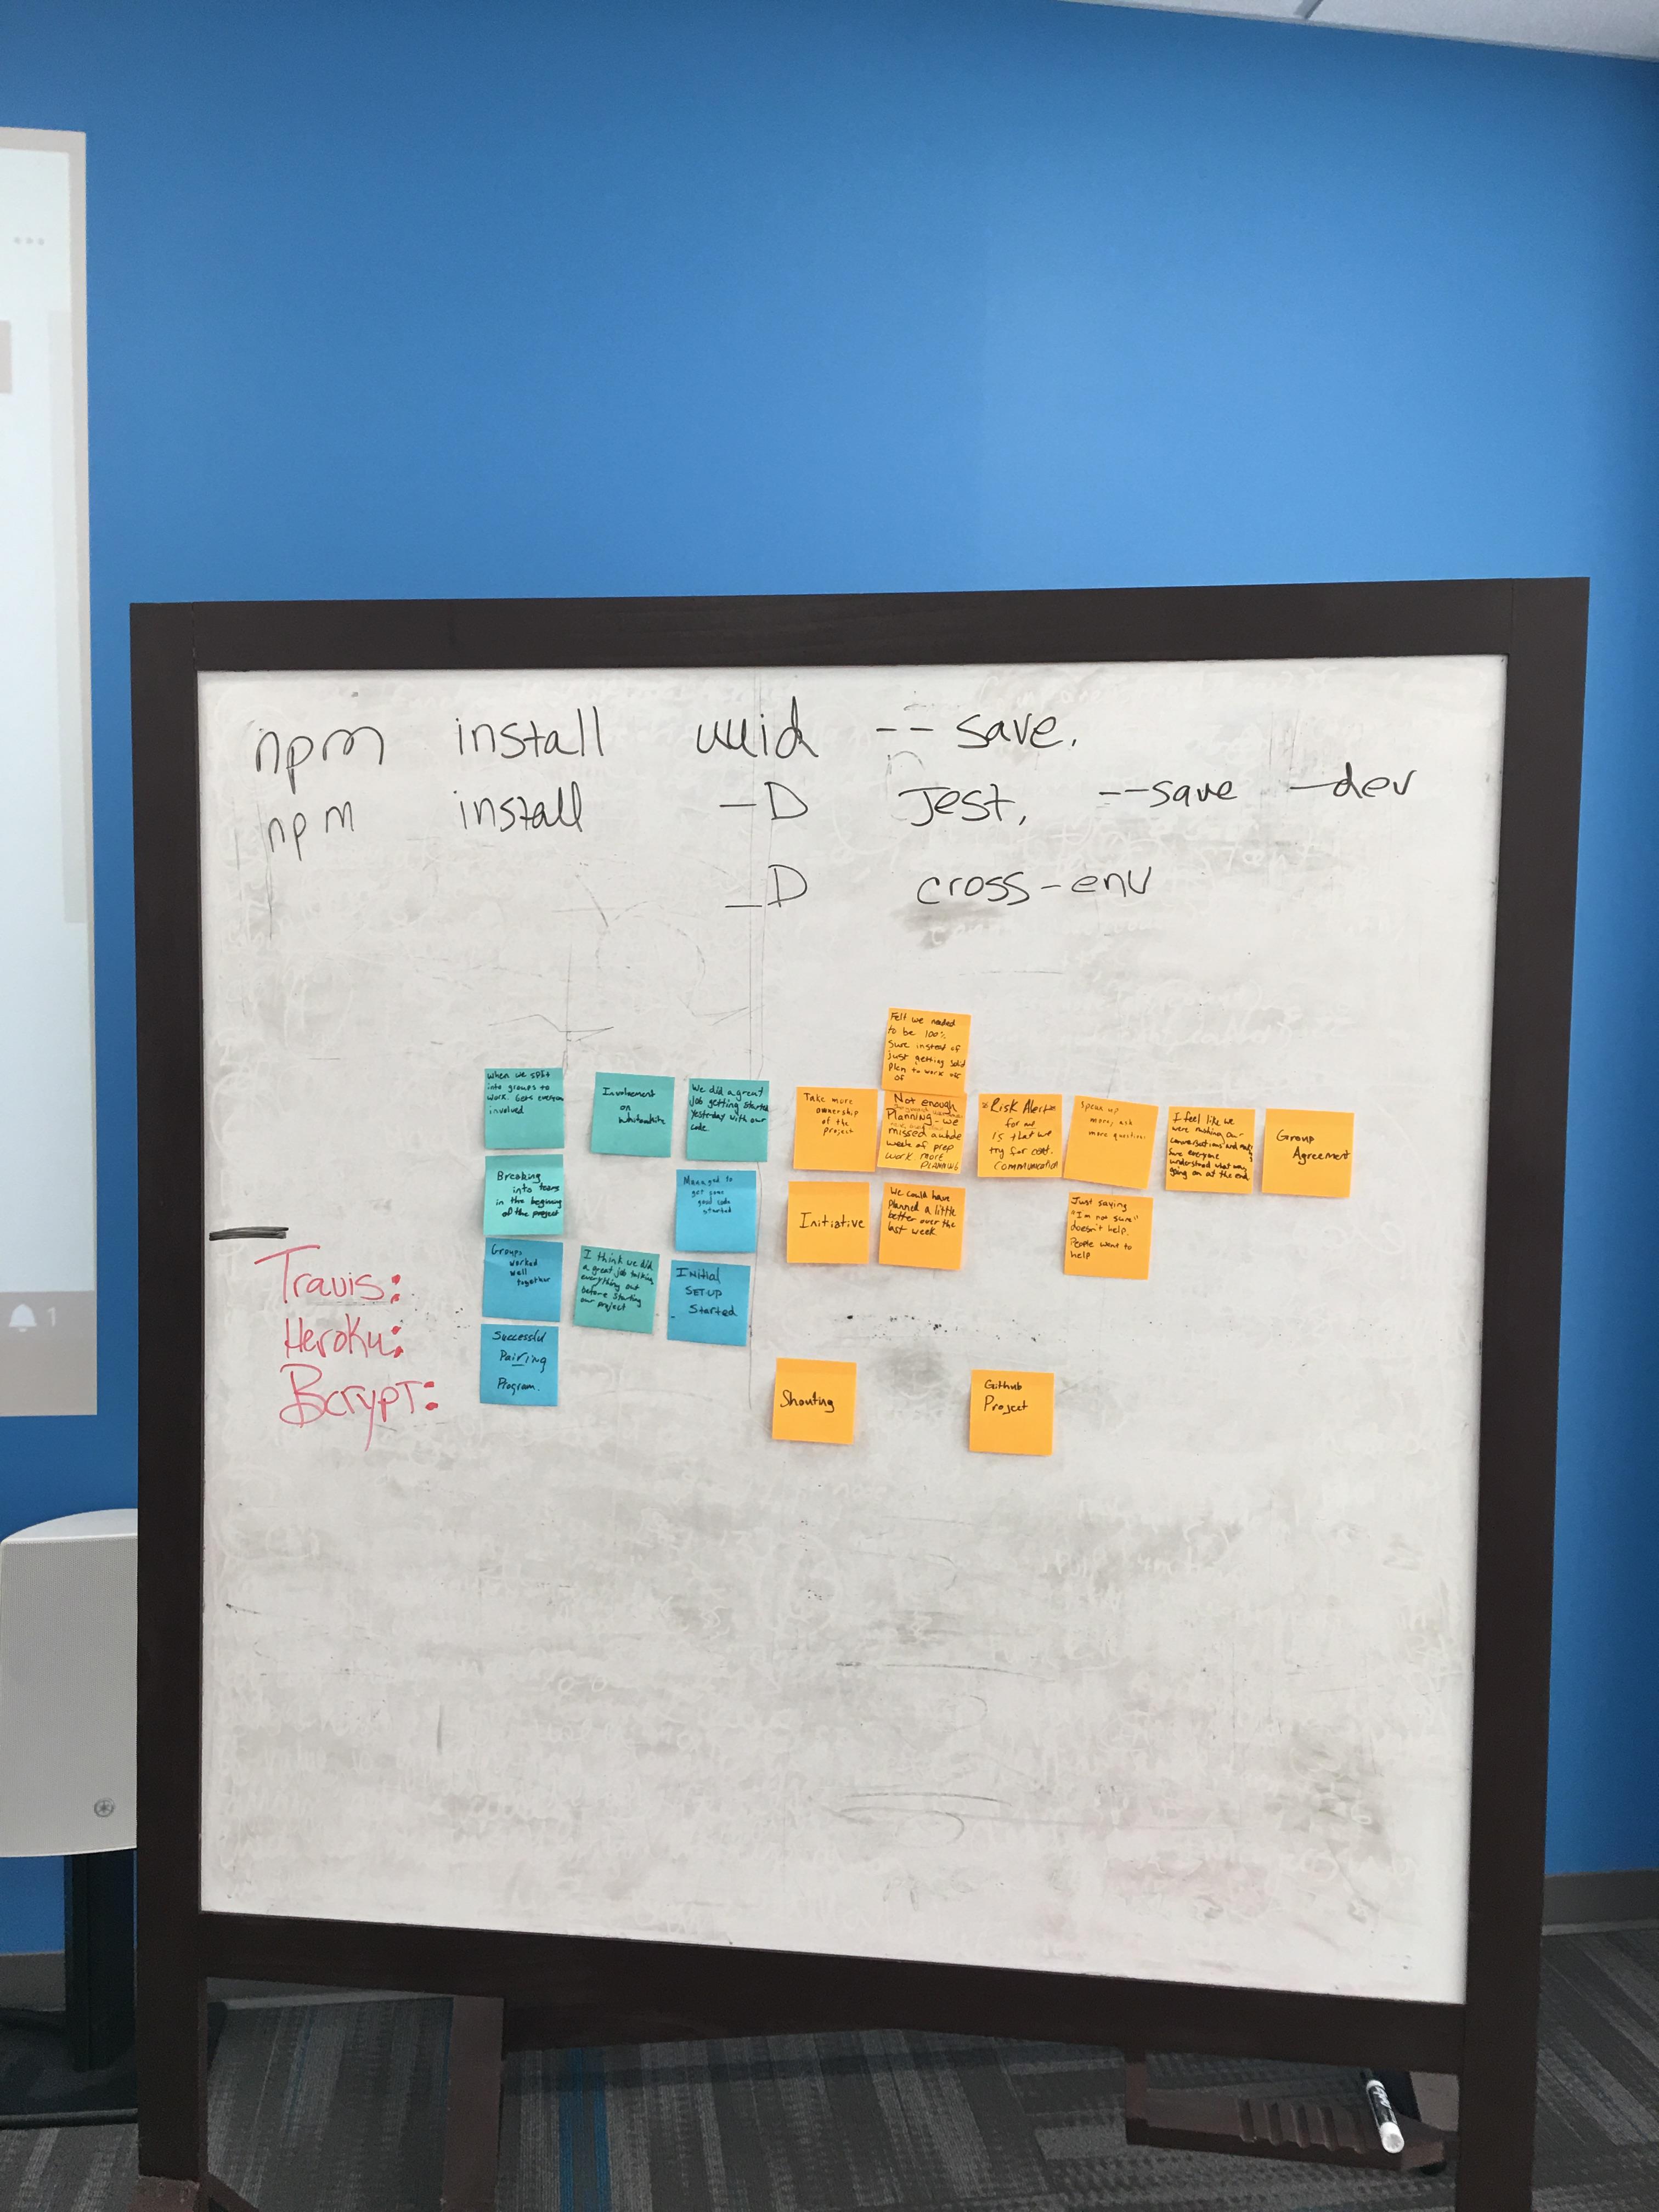 npm install uuid -- save.
npm install -D Jest, --save -dev
-D cross-env
Travis:
Heroku:
Bcrypt:
When we split
into groups to
work. Gets everyone
involved
Involvement
on
We did a great
job getting started
yesterday with our
code
Breaking
into teams
in the beginning
of the project
Managed to
get some
good code
started
Groups
worked
well
together
I think we did
a great job talking
everything out
before starting
our project
INitial
SET-UP
Started
Successful
Pairing
Program.
Felt we needed
to be 100%
sure instead of
just getting solid
plan to work off
of
Take more
ownership
of the
project
Not enough
Planning - we
missed a whole
week of prep
work more
PLANNING
*Risk Alert*
for me
is that we
try for cont.
communication
Speak up
more, ask
more questions
I feel like we
were rushing our
conversations and making
sure everyone
understood what was
going on at the end
Group
Agreement
Initiative
We could have
planned a little
better over the
last week
Just saying
"I'm not sure"
doesn't help.
People want to
help
Shouting
Github
Project
1